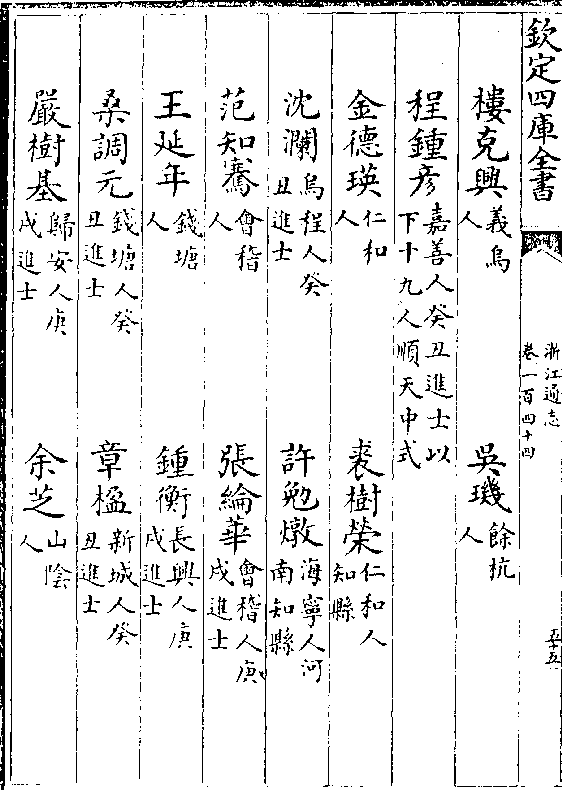 欽定四庫全書
浙江通志
卷一百四十四
五十五
樓克興義烏人
吳璣餘杭人
程鍾彥嘉善人癸丑進士以下十九人順天中式
金德瑛仁和人
裘樹榮仁和人知縣
沈瀾烏程人癸丑進士
許勉燉海寧人河南知縣
范知騫會稽人
張綸華會稽人庚戌進士
王延年錢塘人
鍾衡長興人庚戌進士
桑調元錢塘人癸丑進士
章楹新城人癸丑進士
嚴樹基歸安人庚戌進士
余芝山陰人